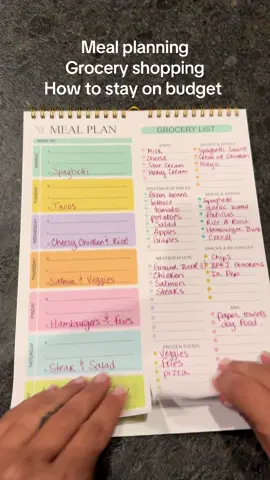 Meal planning
Grocery shopping
How to stay on budget
MEAL PLAN
Spaghetti
Tacos
Cheesy Chicken & Rice
Salmon & Veggies
Hamburgers & Fries
Steak & Salad
GROCERY LIST
DAIRY
Milk
Cheese
Sour Cream
Heavy Cream
Spaghetti Sauce
Cream of Chicken
Mayo
Green beans
lettuce
tomato
potatoes
Salad
Apples
Grapes
Spaghetti
garlic bread
Tortillas
Rice a Roni
Hamburger Buns
Cereal
Ground Beef
Chicken
Salmon
Steaks
Chips
Dr. Pop
MISC
paper towels
dog food
FROZEN FOODS
Veggies
fries
pizza